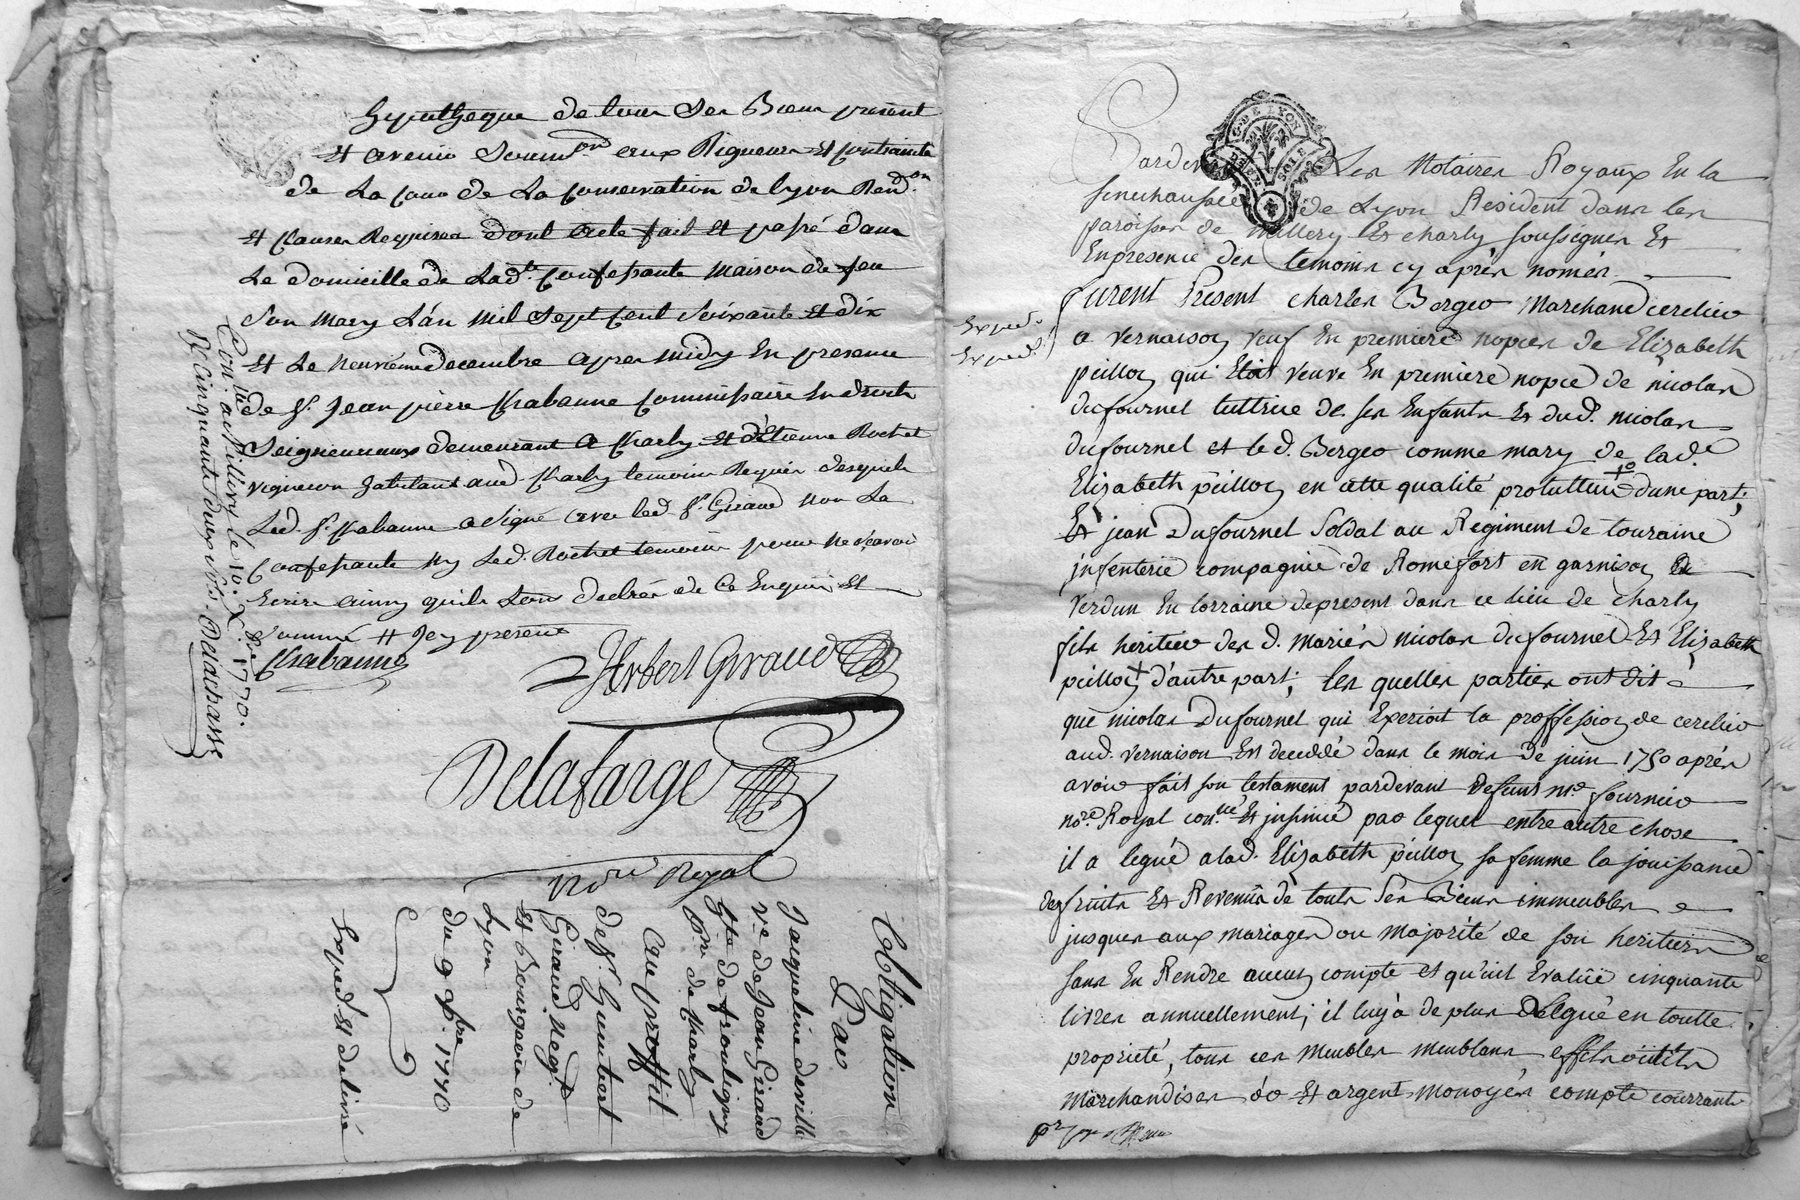 hypotheque de tous ses Biens present
et avenir soum.on aux Rigueurs et Contrainte
de La Cour de La Conservation de lyon Ren.on
et Clauses Requises dont acte fait et passé dans
Le domicille de Lad.te Confessante maison de feu
son mary L'an mil sept Cent soixante et dix
et Le neuvieme decembre apres midy En presence
de Sr. Jean pierre Chabanne Commissaire En droits
seigneuriaux demeurant a Charly et d'Etienne Rochet
vigneron habitant aud Charly temoins Requis desquels
Led. Sr. Chabanne a signé avec led Sr. Giraud non La
Confessante ny Led. Rochet temoin pour ne sçavoir
Ecrire ainsy quils L'ont declaré de Ce Enquis et
sommé
Chabanne
Herbert Giraud
Delafarge
nore Royal
Con.lé a Millery le 10. Xbre 1770.
R Cinquante deux sols. Delachasse
Obligation
Par
Jacqueline deville
ve. de Jean Girard
de frontigny
de Charly
Au proffit
de Sr. humbert
Giraud. Negt.
et Bourgeois de
Lyon
du 9 Xbre. 1770
Exped. et delivré
Pardevant Les Notaires Royaux En la
senechaussée de Lyon Résident dans les
paroisses de Millery Et charly soussignés Et
En presence des temoins cy après només
furent Présent charles Berger Marchand cerclier
Exped.
Exped.
a vernaison veuf En premiere nopces de Elizabeth
peilloz qui Etoit veuve En premiere nopce de nicolas
dufournel tuttrice de ses Enfants Et dud. nicolas
dufournel et led. Berger comme mary de lad.e
Elizabeth peilloz en cette qualité protutteur d'une part;
Et jean Dufournel Soldat au Régiment de touraine
jnfenterie compagnie de Romefort en garnison
verdun En lorraine depresent dans ce lieu de charly
fils heritier des d. mariés nicolas dufournel Et Elizabeth
peilloz d'autre part; les quelles parties ont dit
que nicolas Dufournel qui Exerçoit la proffession de cerclier
aud. vernaison Est deceddé dans le mois de juin 1750 après
avoir fait son testament pardevant defunt me. fournier
no.re Royal con.llé Et jnsinué par lequel entre autre chose
il a legué a lad. Elizabeth peilloz sa femme la jouissance
des fruits Et Revenus de touts ses Biens immeubles
jusques aux mariages ou majorité de son heritiers
sans En Rendre aucun compte et qu'il Evalüe cinquante
livres annuellement; il luy a de plus Légué en toutte
propriété, tous ces meubles meublans effets
Marchandises or Et argent monoyés compte courrants